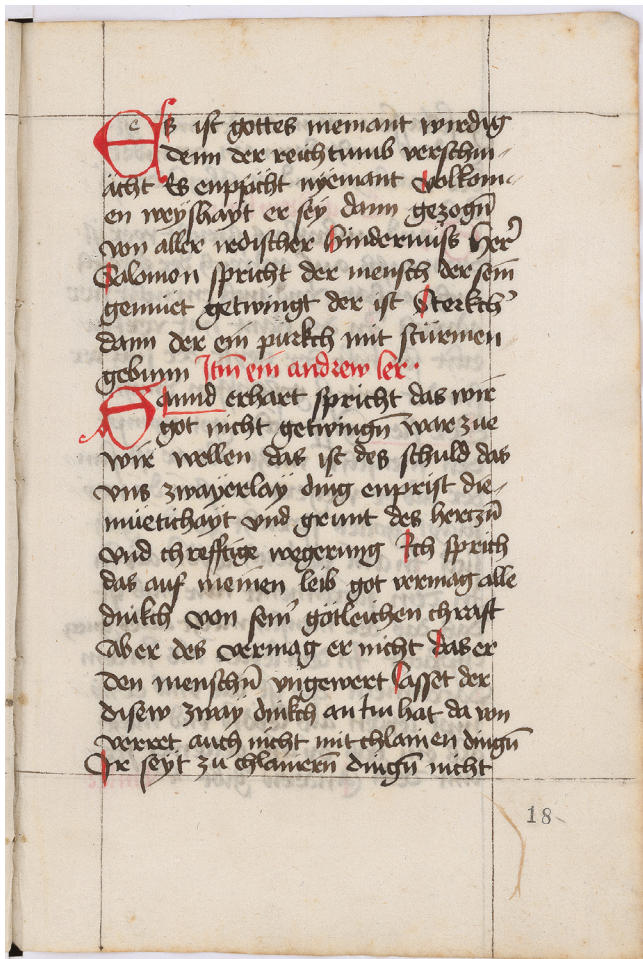 Es ist gottes niemant wirdig
denn der reichtumb verschm-
acht Es enpficht nyemant volkom-
en weyshayt er sey dann gezogn̄
von aller irdischer hindernuss her̄
Salomon spricht der mensch der sein
gemüet getwingt der ist sterkch̓
dann der ein purkch mit stürmen
gebunn Itm̄ ein andrew ler ·
Sannd erhart spricht das wir
got nicht getwingn̄ war zue
wir wellen das ist des schuld das
vns zwayerlay ding enprist die-
müetichayt vnd grunt des hertzn̄
vnd chrefftige wegerung Ich sprich
das auf meinen leib got vermag alle
dinkch von sein̓ götleichen chraft
Aber des vermag er nicht das er
den menschn̄ vngewert lasset der
disew zway dinkch an im hat da von
verret auch nicht mit chlainen dingn̄
Ir seyt zu chlainern̄ dingn̄ nicht
18